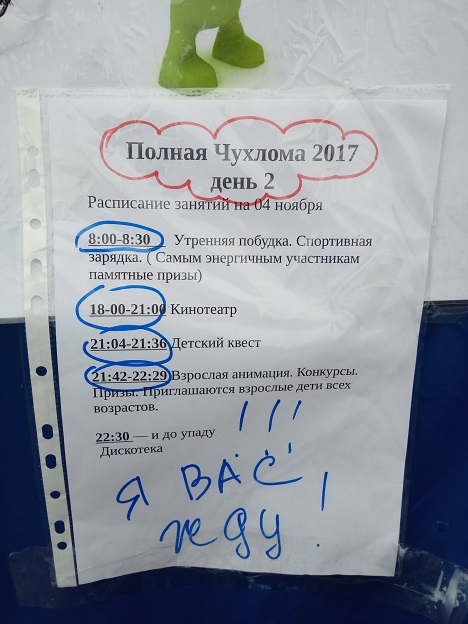 Полная Чухлома 2017
день 2
Расписание занятий на 04 ноября
8:00-8:30 Утренняя побудка. Спортивная
зарядка. ( Самым энергичным участникам
памятные призы)
18-00-21:00 Кинотеатр
21:04-21:36 Детский квест
21:42-22:29 Взрослая анимация. Конкурсы.
Призы. Приглашаются взрослые дети всех
возрастов.
22:30 — и до упаду !!!
Дискотека
Я ВАС
жду!